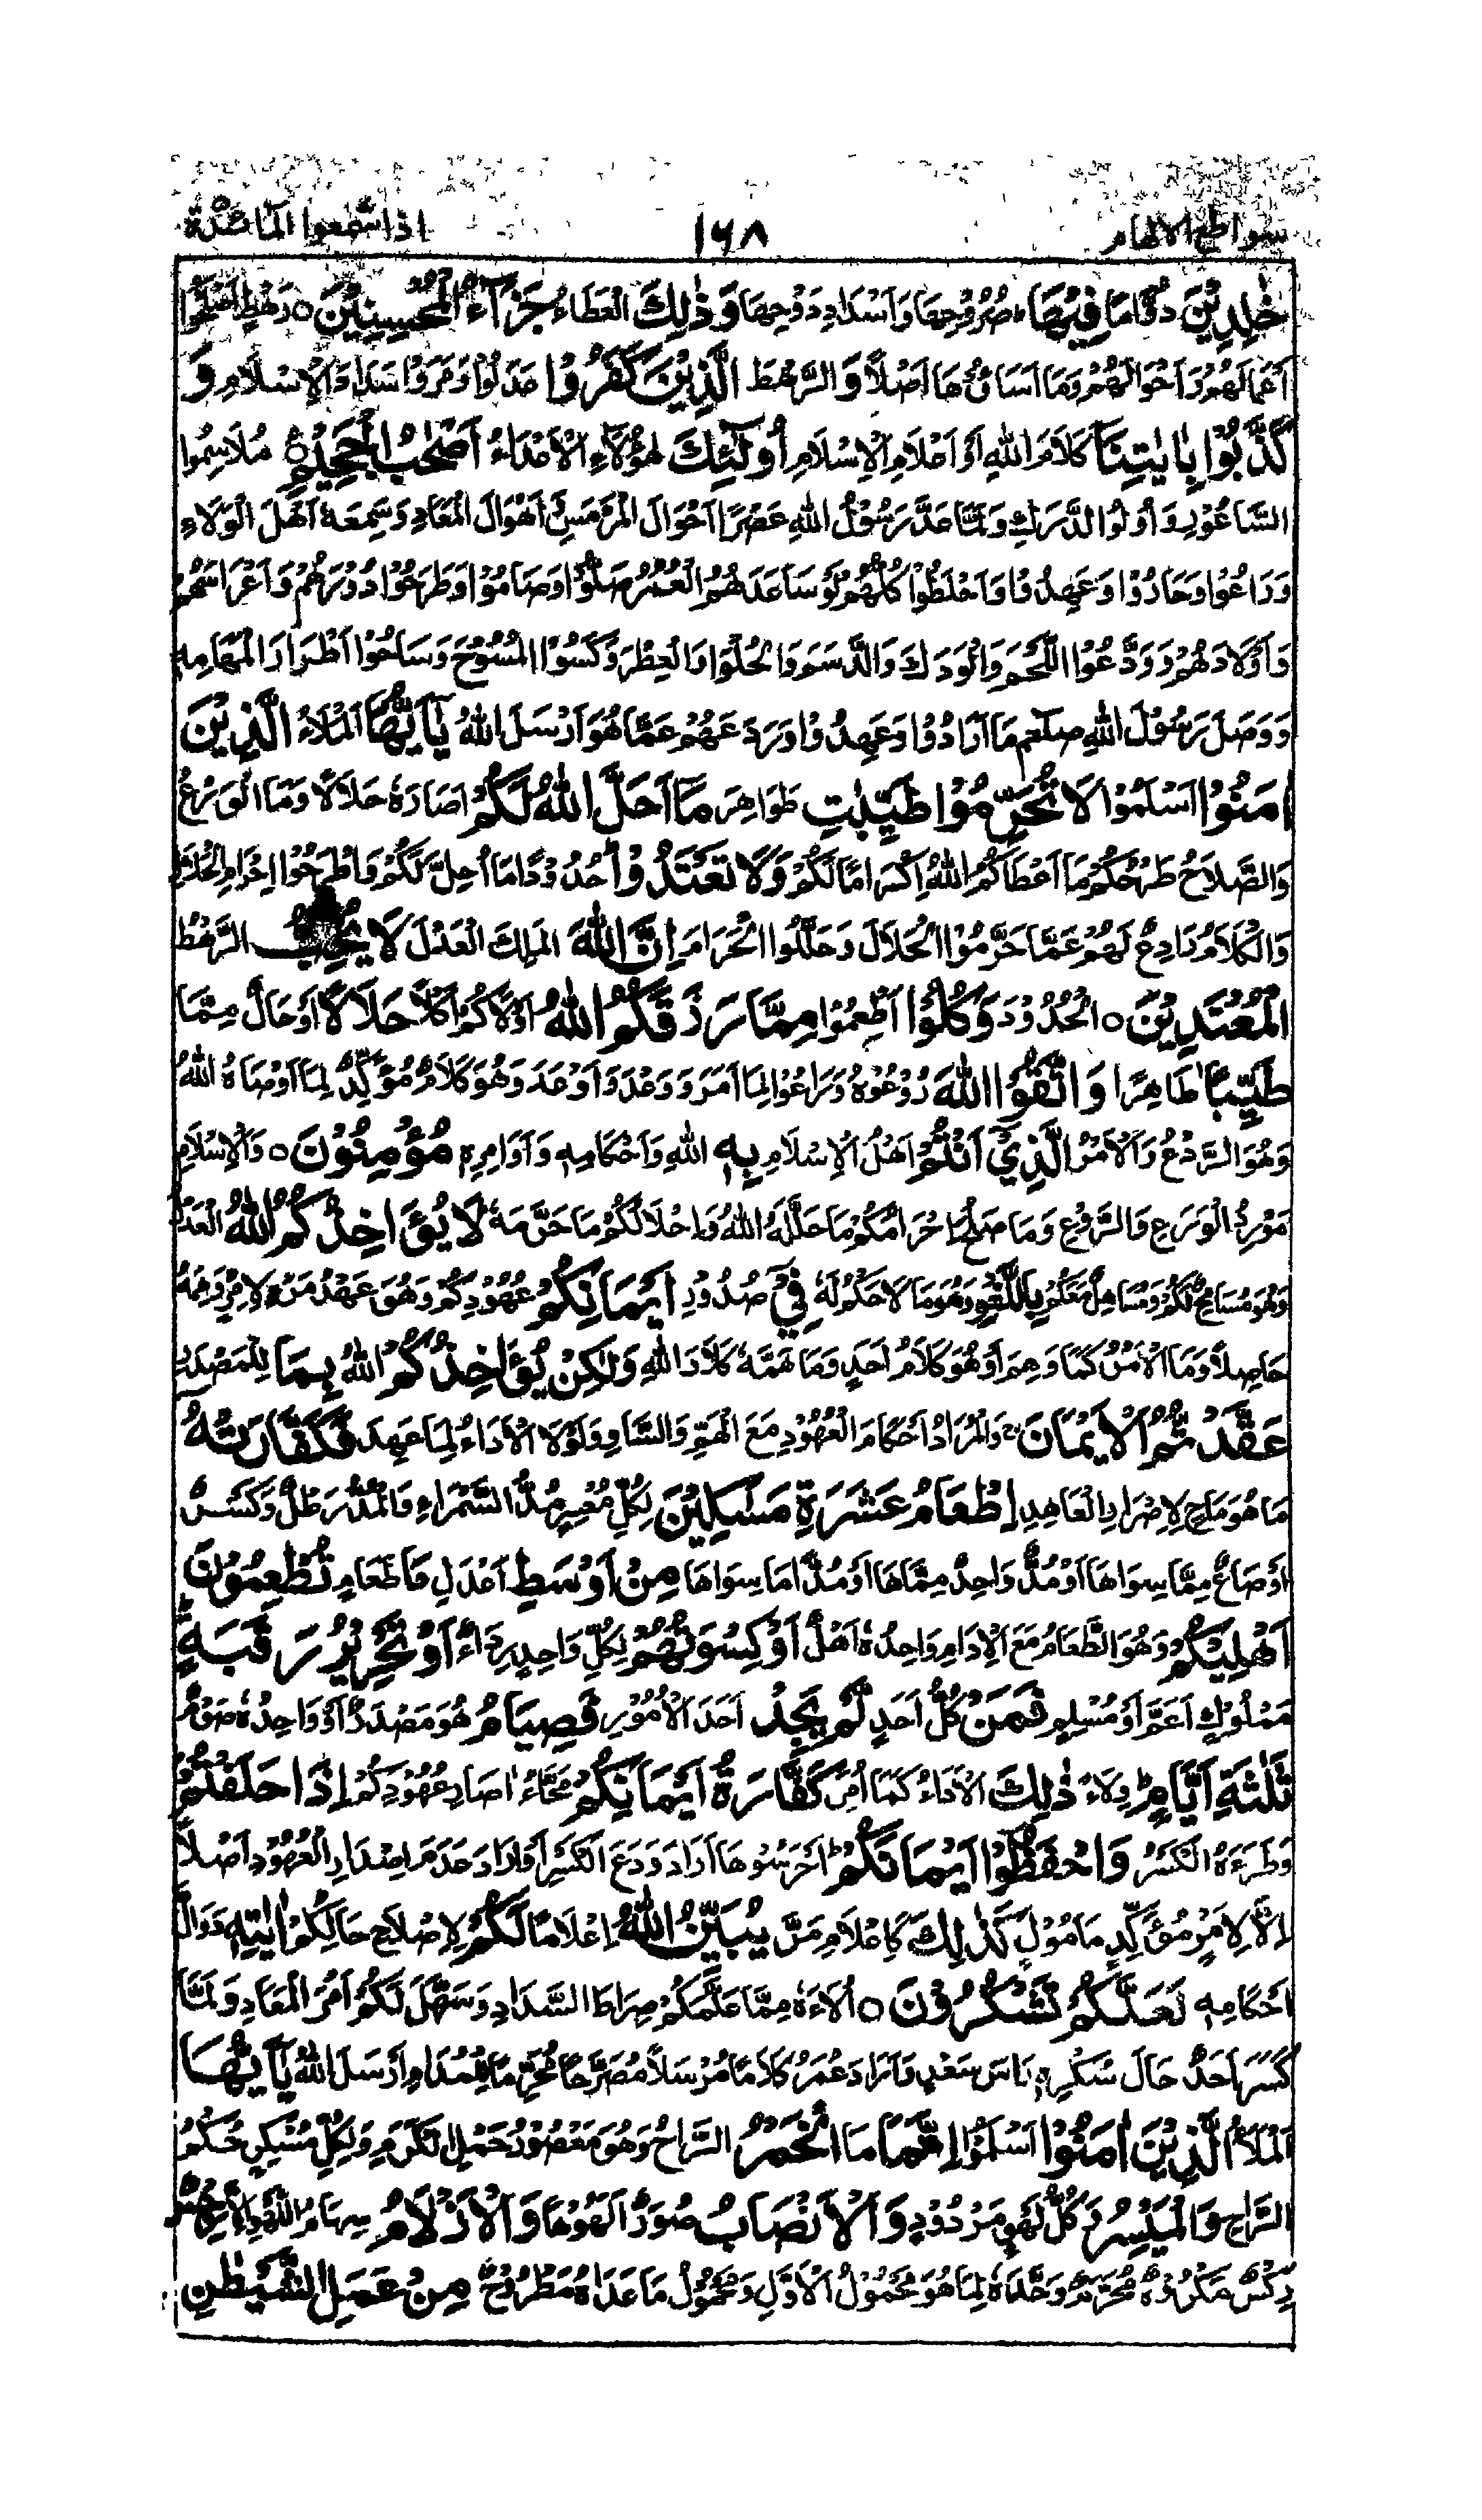 سواطع الالهام ١٦٨ اذا سمعوا المائدة
خٰلِدِيْنَ دوَّامًا فِيْهَا صُرُوْحِهَا وَأَسْدَادِ دَوْحِهَا وَذٰلِكَ الْعَطَاءُ جَزَآءُ الْمُحْسِنِيْنَ ○ رَهْطٍ أَصْلَحُوْا
أَعْمَالَهُمْ وَأَحْوَالَهُمْ وَمَا أَسَاؤُهَا أَصْلًا وَالرَّهْطَ الَّذِيْنَ كَفَرُوْا عَدَلُوْا وَمَرَدُوْا سَدَادَ الْإِسْلَامِ وَ
كَذَّبُوْا بِاٰيٰتِنَآ كَلَامِ اللهِ أَوْ أَعْلَامِ الْإِسْلَامِ أُولٰٓئِكَ هٰؤُلَاءِ الْأَعْدَاءُ أَصْحٰبُ الْجَحِيْمِ ○ مُلَاسِمُوا
السَّاعُوْرِ وَأُولُوا الدَّرَكِ وَلَمَّا عَدَّ رَسُوْلُ اللهِ عَصْرًا أَحْوَالَ الْمَرْمَسِ أَهْوَالَ الْمَعَادِ وَسَمِعَهُ أَهْلُ الْوَلَاءِ
وَرَاعُوْا وَحَارُوْا وَعَهِدُوْا وَأَحْلَطُوْا كُلُّهُمْ لَوْ سَاعَدَهُمُ الْعُمُرُ صَلَّوْا وَصَامُوْا وَطَرَحُوْا دُوْرَهُمْ وَأَعْرَاسَهُمْ
وَأَوْلَادَهُمْ وَوَدَّعُوا اللَّحْمَ وَالْوَدَكَ وَالدَّسَمَ وَالْحُلْوَا وَالْعِطْرَ وَكَسَوُا الْمُسُوْحَ وَسَاحُوْا أَطْرَارَ الْمَهَامِهِ
وَوَصَلَ رَسُوْلَ اللهِ صلعم مَا أَرَادُوْا وَعَهِدُوْا وَرَدَعَهُمْ عَمَّا هُوَ أَرْسَلَ اللهُ يٰٓأَيُّهَا الْمَلَاءُ الَّذِيْنَ
اٰمَنُوْا أَسْلَمُوْا لَا تُحَرِّمُوْا طَيِّبٰتِ طَوَاهِرَ مَآ أَحَلَّ اللهُ لَكُمْ أَصَارَهُ حَلَالًا وَمَا الْوَرَعُ
وَالصَّلَاحُ طَرْحُكُمْ مَا أَعْطَاكُمُ اللهُ إِكْرَامًا لَكُمْ وَلَا تَعْتَدُوْا حُدُوْدًا مَا أُحِلَّ لَكُمْ فَاطْرَحُوْا إِحْرَامَ الْحَلَالِ
وَالْكَلَامُ رَادِعٌ لَهُمْ عَمَّا حَرَّمُوا الْحَلَالَ وَحَلَّلُوا الْحَرَامَ إِنَّ اللهَ الْمَلِكَ الْعَدْلَ لَا يُحِبُّ الرَّهْطَ
الْمُعْتَدِيْنَ ○ الْحُدُوْدَ وَكُلُوْا أَطْعِمُوْا مِمَّا رَزَقَكُمُ اللهُ أَوْلَاكُمْ أَكْلًا حَلَالًا أَوْ حَالٌ مِمَّا
طَيِّبًا طَاهِرًا وَاتَّقُوا اللهَ رُوْعُوْهُ وَرَاعُوْا لِمَا أَمَرَ وَوَعَدَ وَأَوْعَدَ وَهُوَ كَلَامٌ مُؤَكِّدٌ لِمَا أَوْصَاهُ اللهُ
وَهُوَ الرَّدْعُ وَالْأَمْرُ الَّذِيْٓ أَنْتُمْ أَهْلُ الْإِسْلَامِ بِهٖ اللهِ وَأَحْكَامِهٖ وَأَوَامِرِهٖ مُؤْمِنُوْنَ ○ وَالْإِسْلَامُ
مَوْرِدُ الْوَرَعِ وَالرَّوْعِ وَمَا صَلُحَ إِحْرَامُكُمْ مَا حَلَّلَهُ اللهُ وَإِحْلَالُكُمْ مَا حَرَّمَهُ لَا يُؤَاخِذُكُمُ اللهُ الْعَدْلُ
وَهُوَ مُسَامِحٌ لَكُمْ وَمُسَاهِلٌ مَعَكُمْ بِاللَّغْوِ وَهُوَ مَا لَا حُكْمَ لَهُ فِيْٓ صُدُوْرِ أَيْمَانِكُمْ عُهُوْدِكُمْ وَهُوَ عَهْدُ مَرْءٍ لِأَمْرٍ وَهِمَهُ
حَاصِلًا وَمَا الْأَمْرُ كَمَا وَهِمَ أَوْ هُوَ كَلَامُ أَحَدٍ وَمَا هَمَّهُ كَلَا وَاللهِ وَلٰكِنْ يُؤَاخِذُكُمُ اللهُ بِمَا لِلْمَصْدَرِ
عَقَّدْتُمُ الْأَيْمَانَ وَالْمُرَادُ أَحْكَامُ الْعُهُوْدِ مَعَ الْهَمِّ وَالسَّدْوِ وَلَوْلَا الْأَدَاءُ لِمَا عَهِدَ فَكَفَّارَتُهٗٓ
مَا هُوَ مَاحٍ لِإِصْرَارِ الْعَاهِدِ إِطْعَامُ عَشَرَةِ مَسٰكِيْنَ لِكُلِّ مُعْسِرٍ مُدُّ السَّمْرَاءِ وَالْمُدُّ رَطْلٌ وَكَسْرٌ
أَوْ صَاعٌ مِمَّا سِوَاهَا أَوْ مُدٌّ وَاحِدٌ مِمَّاهَا أَوْ مُدٌّ أَمَا سِوَاهَا مِنْ أَوْسَطِ أَعْدَلِ طَعَامٍ تُطْعِمُوْنَ
أَهْلِيْكُمْ وَهُوَ الطَّعَامُ مَعَ الْإِدَامِ وَاحِدُهُ أَهْلٌ أَوْ كِسْوَتُهُمْ لِكُلِّ وَاحِدٍ رِدَاءٌ أَوْ تَحْرِيْرُ رَقَبَةٍ
مَمْلُوْكٍ أَعَمَّ أَوْ مُسْلِمٍ فَمَنْ كُلُّ أَحَدٍ لَّمْ يَجِدْ أَحَدَ الْأُمُوْرِ فَصِيَامُ هُوَ مَصْدَرٌ أَوْ وَاحِدُهُ صَوْمٌ
ثَلٰثَةِ أَيَّامٍ وِلَاءً ذٰلِكَ الْأَدَاءُ كَمَا أُمِرَ كَفَّارَةُ أَيْمَانِكُمْ مَحَّاءُ إِصَارِ عُهُوْدِكُمْ إِذَا حَلَفْتُمْ
وَطَرَءَهُ الْكَسْرُ وَاحْفَظُوْٓا أَيْمَانَكُمْ أُحْرُسُوْهَا أَرَادَ وَدَعَ الْكَسْرِ أَوْ أَرَادَ عَدَمَ إِصْدَارِ الْعُهُوْدِ أَصْلًا
إِلَّا لِأَمْرٍ مُؤَكَّدٍ مَأْمُوْلٍ كَذٰلِكَ كَإِعْلَامٍ مَرَّ يُبَيِّنُ اللهُ إِعْلَامًا لَكُمْ لِإِصْلَاحِ حَالِكُمْ اٰيٰتِهٖ دَوَالَّ
أَحْكَامِهٖ لَعَلَّكُمْ تَشْكُرُوْنَ ○ أَلَاءَهُ مِمَّا عَلَّمَكُمْ صِرَاطَ السَّدَادِ وَسَهَّلَ لَكُمْ أَمْرَ الْمَعَادِ وَلَمَّا
كَسَرَ أَحَدٌ حَالَ سُكْرِهٖ رَاسَ سَعْدٍ وَأَرَادَ عُمَرُ كَلَامًا مُرْسَلًا مُصَرِّحًا مُحَرِّمًا لِلْمُدَامِ أَرْسَلَ اللهُ يٰٓأَيُّهَا
الْمَلَاءُ الَّذِيْنَ اٰمَنُوْٓا أَسْلَمُوْا إِنَّمَا مَا الْخَمْرُ الرَّاحُ وَهُوَ مَعْصُوْرُ حَمْلِ الْكَرْمِ وَلِكُلِّ مُسْكِرٍ حُكْمُ
الرَّاحِ وَالْمَيْسِرُ كُلُّ لَهْوٍ مَرْدُوْدٍ وَالْأَنْصَابُ صُوَرٌ أَلَّهُوْهَا وَالْأَزْلَامُ سِهَامُ اللَّهْوِ
رِكْسٌ مَكْرُوْهٌ مُحَرَّمٌ وَحَّدَهُ لِمَا هُوَ مَحْمُوْلُ الْأَوَّلِ وَمَحْمُوْلُ مَا عَدَاهُ مَطْرُوْحٌ مِنْ عَمَلِ الشَّيْطٰنِ